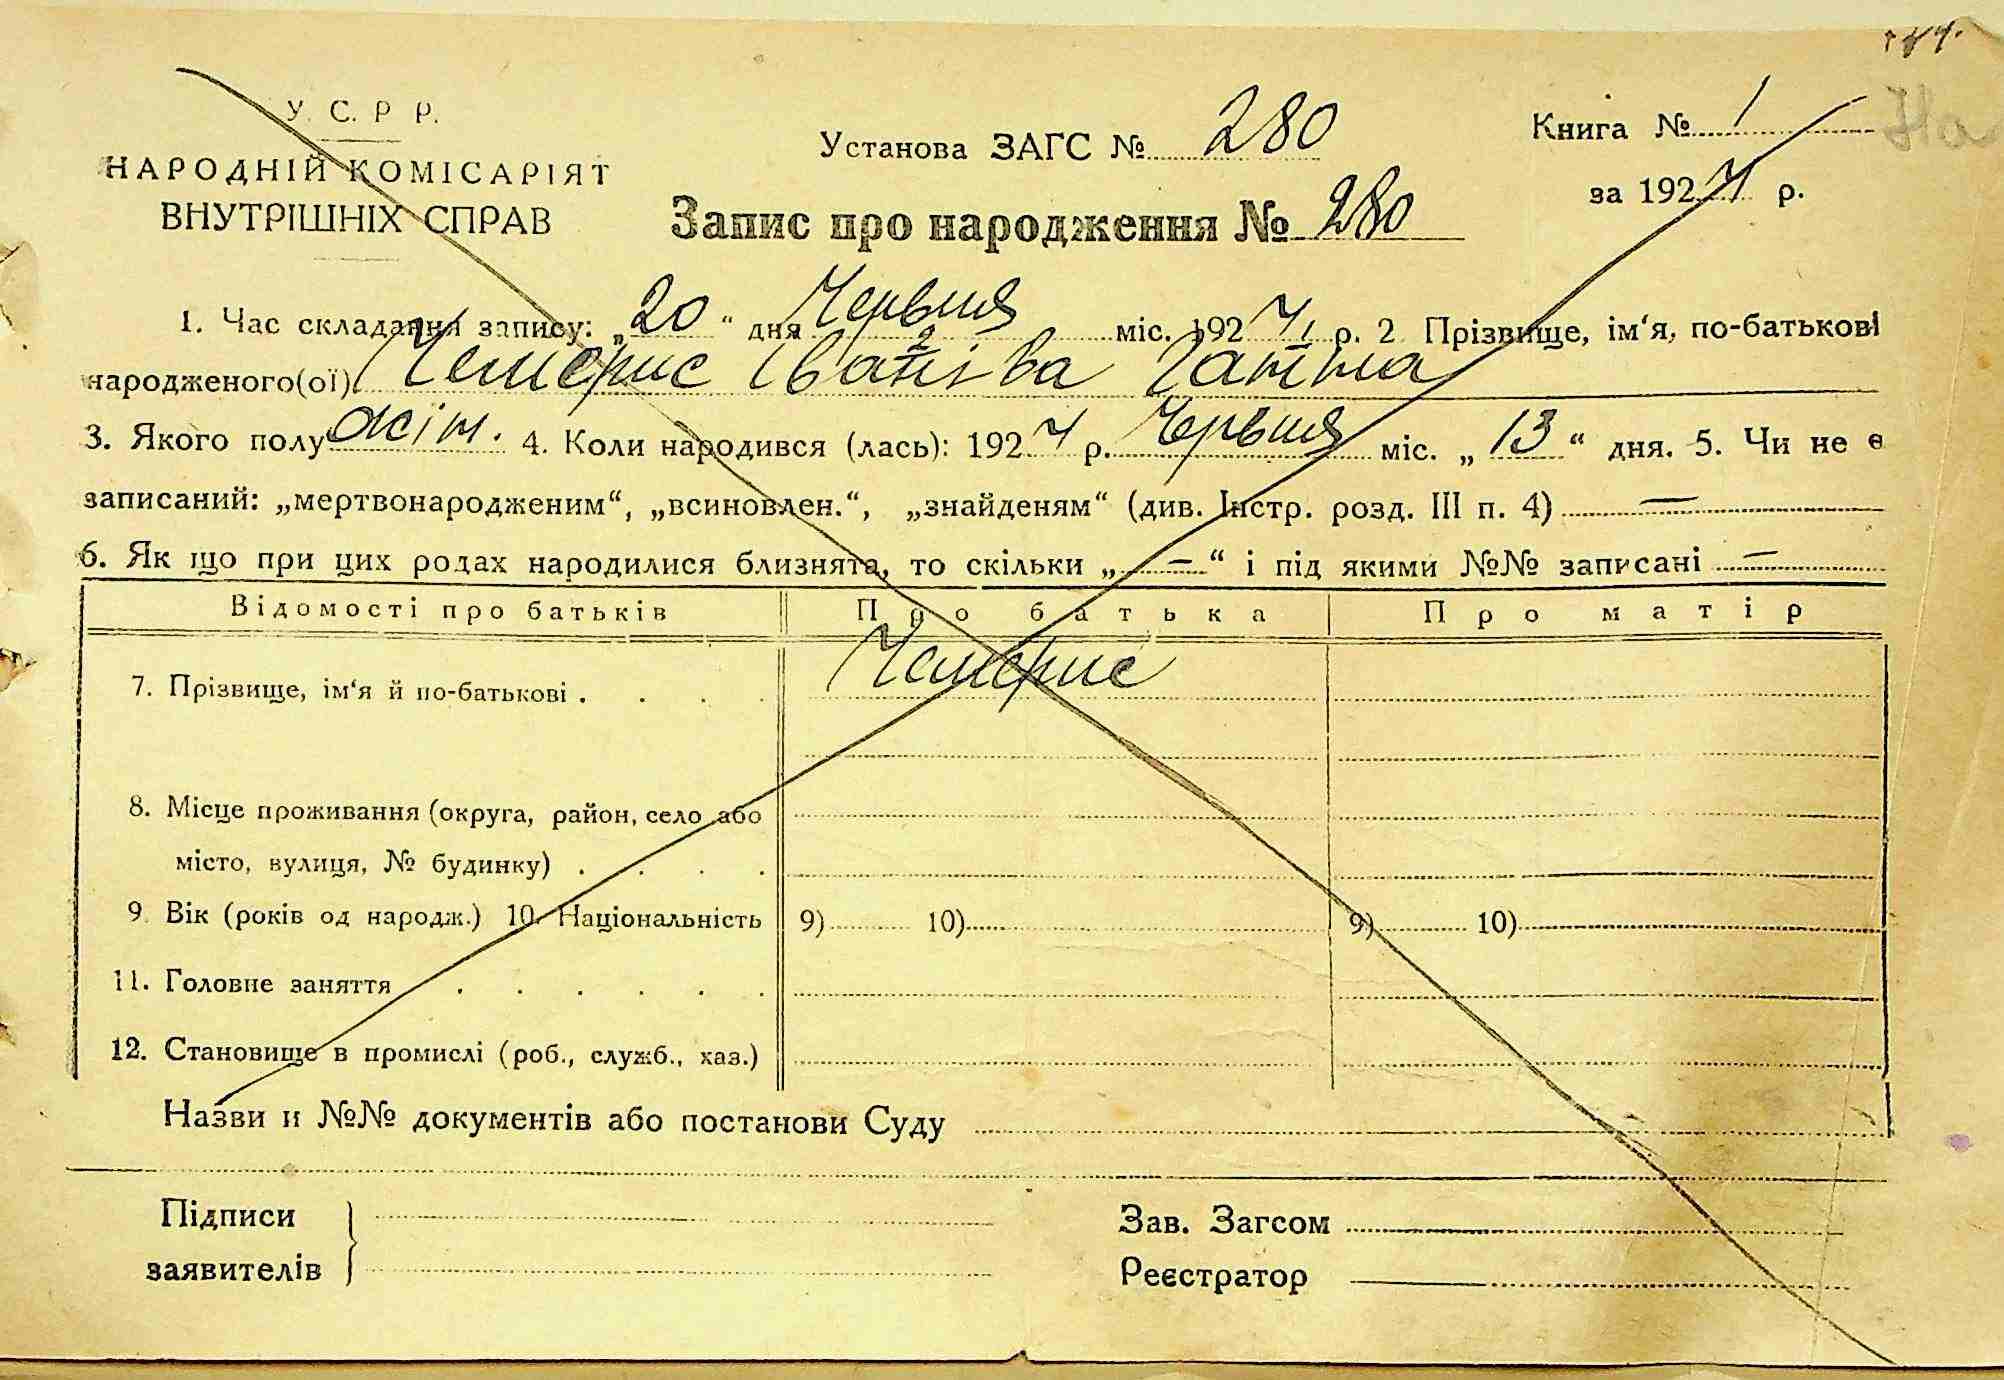 У. С. Р Р.
НАРОДНІЙ КОМІСАРІЯТ
ВНУТРІШНІХ СПРАВ
Установа ЗАГС № 280
Книга № 1
за 1924 р.
Запис про народження № 280
1. Час складання запису: „20“ дня Червня міс. 1924 р. 2 Прізвище, ім‘я, по-батькові
народженого(ої) Чемерис Іванова Гатта
3. Якого полу жін. 4. Коли народився (лась): 1924 р. Червня міс. „13“ дня. 5. Чи не є
записаний: „мертвонародженим“, „всиновлен.“, „знайденям“ (див. Інстр. розд. III п. 4) —
6. Як що при цих родах народилися близнята, то скільки „—“ і під якими №№ записані —
Відомості про батьків Про батька Про матір
7. Прізвище, ім‘я й по-батькові . . . . Чемерис
8. Місце проживання (округа, район, село або
місто, вулиця, № будинку) . . . .
9. Вік (років од народж.) 10. Національність 9) 10) 9) 10)
11. Головне заняття . . . . . .
12. Становище в промислі (роб., служб., хаз.)
Назви и №№ документів або постанови Суду
Підписи
заявителів
Зав. Загсом
Реєстратор